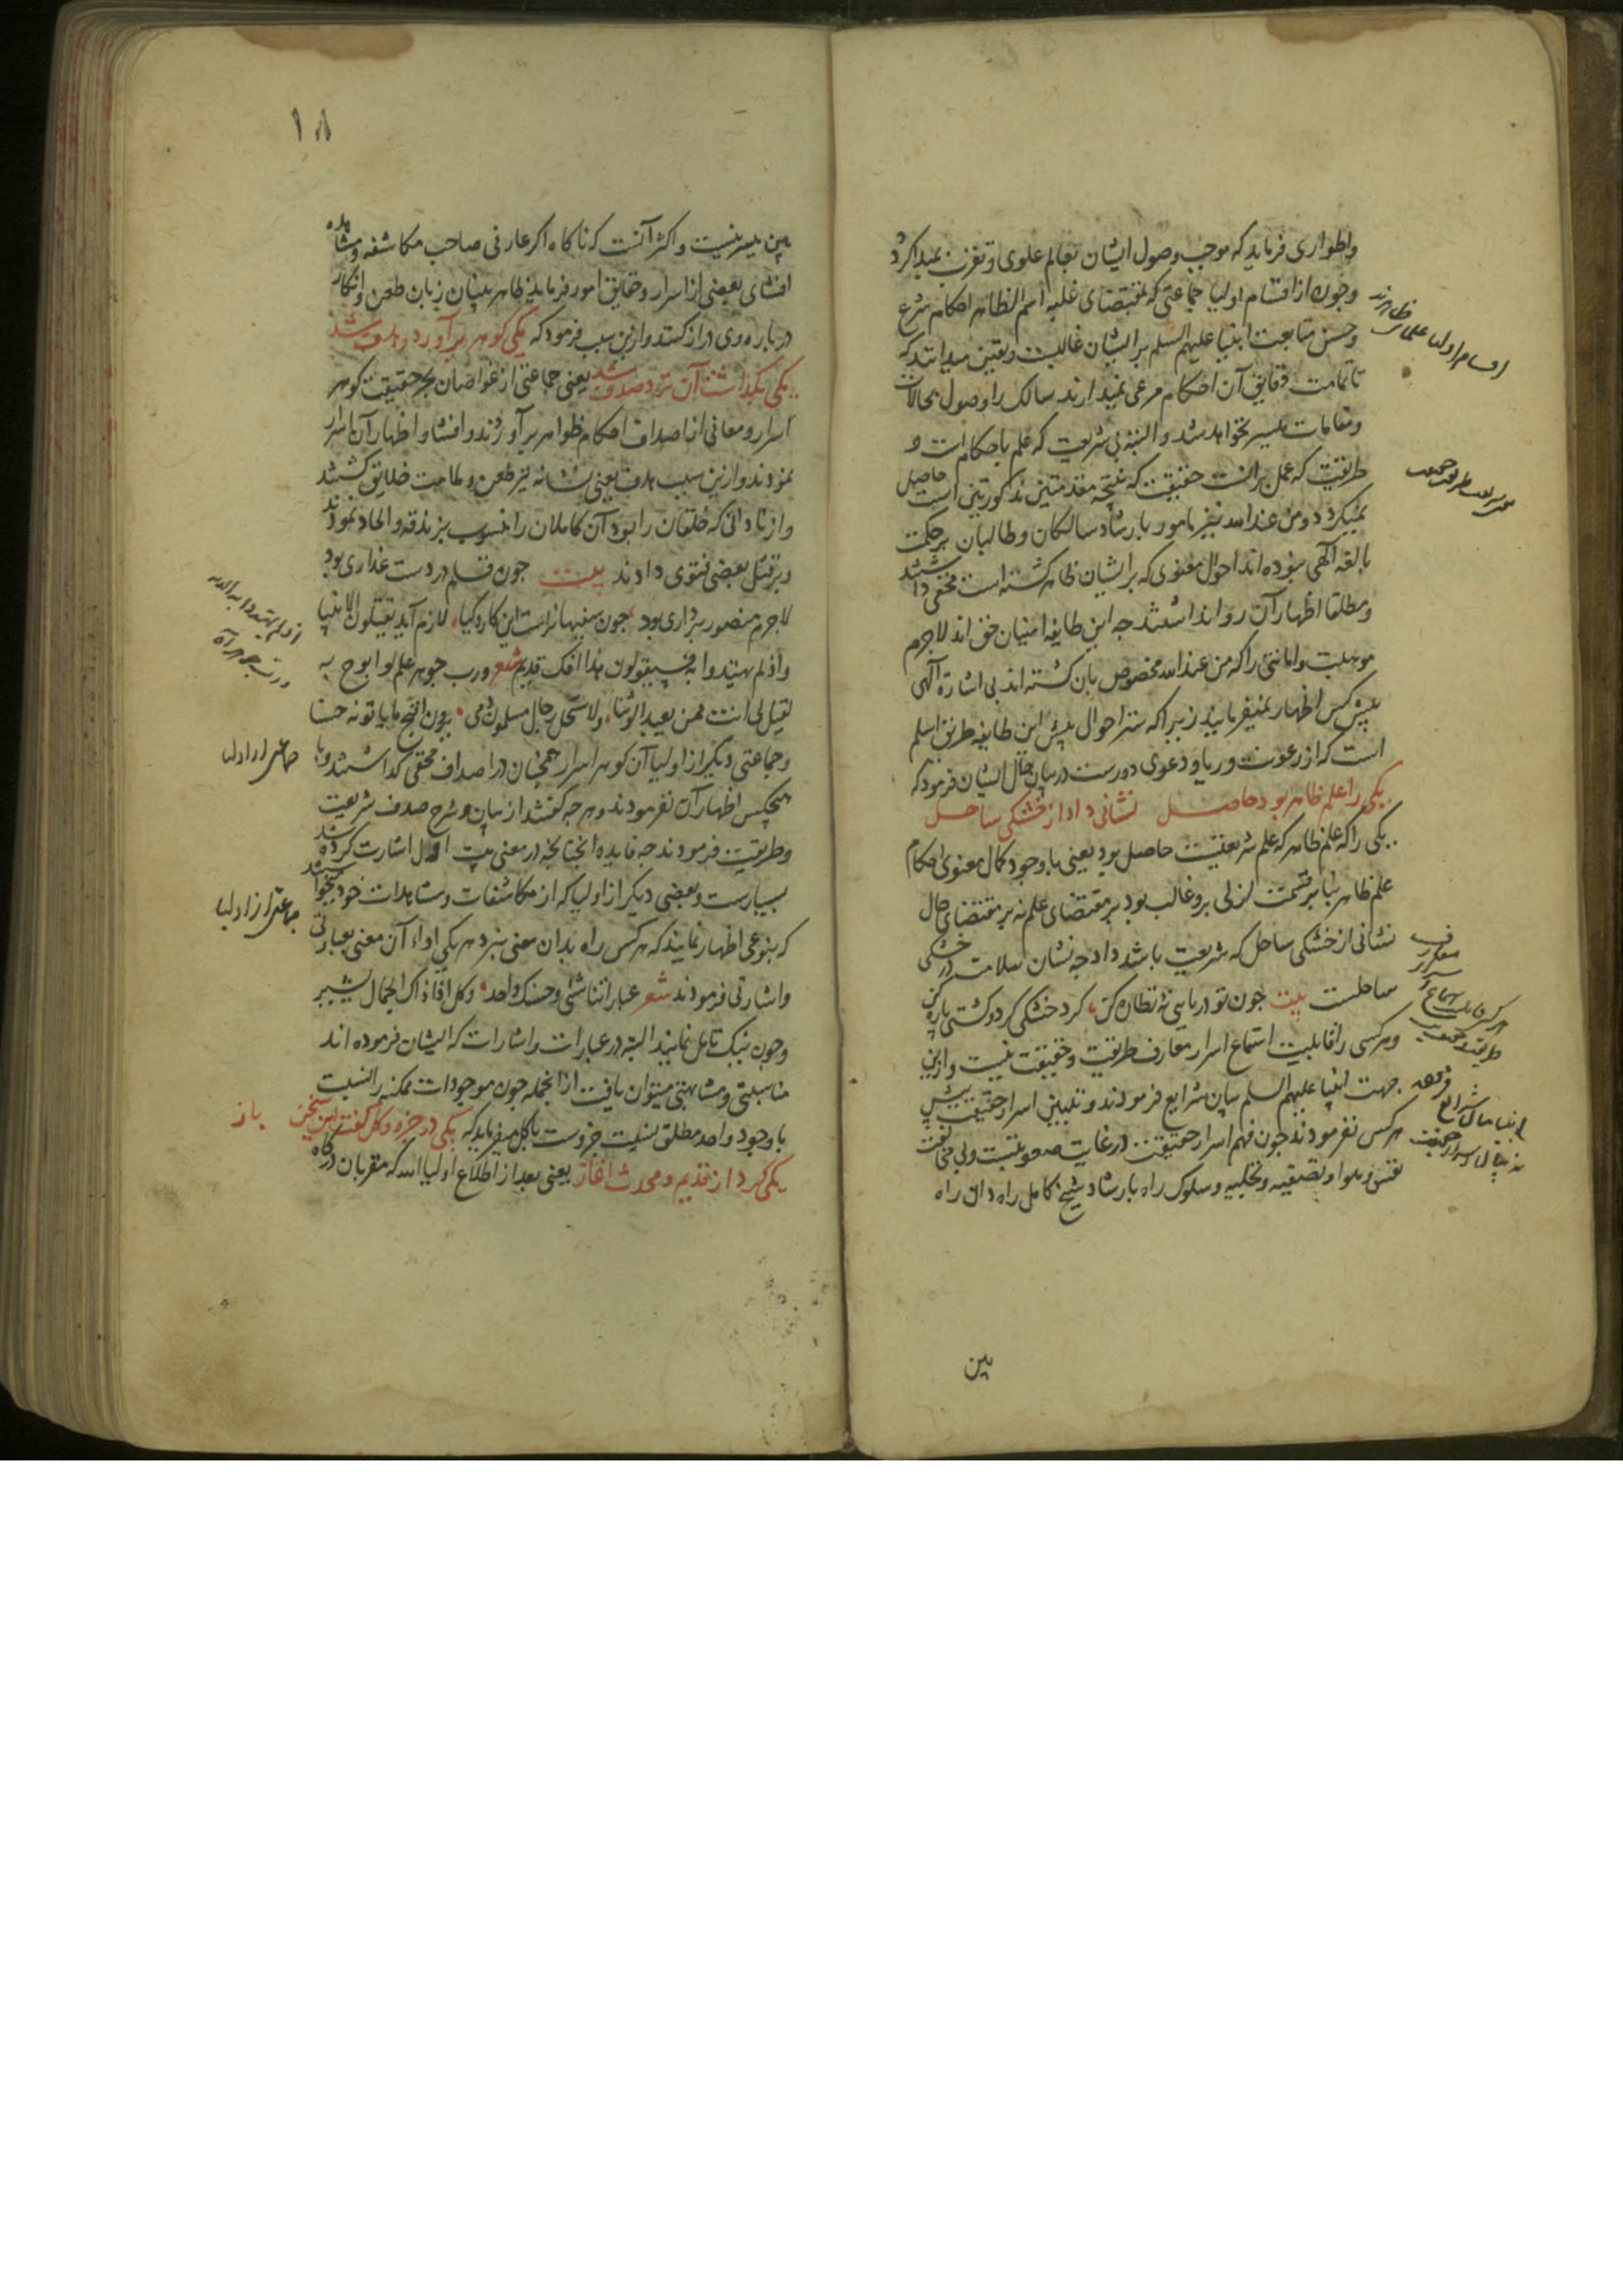 واطواری فرماید که موجب وصول ایشان بعالم علوی و تقرب بمبدا کردد
وچون از اقسام اولیا جماعتی که بمقتضای غلبه اسم الظاهر احکام شرع
وحسن متابعت انبیا علیهم السلم بر ایشان غالبست و یقین میدانند که
تا تمامت دقایق آن احکام مرعی نمیدارند سالک را وصول بحالات
ومقامات میسر نخواهد شد والبته بی شریعت که علم باحکام است و
طریقت که عمل بر انست حقیقت که نتیجه مقدمتین مذکورتین است حاصل
نمیکردد ومن عند الله نیز مامور بارشاد سالکان وطالبان بر حکمت
بالغه الهی نبوده اند احوال معنوی که بر ایشان ظاهر کشته است مخفی داشتند
ومطلقا اظهار آن روا نداشتند چه این طایفه امنیان حق اند لاجرم
موهبت وامانتی را که من عند الله مخصوص بان کشته اند بی اشارة الهی
پیش کس اظهار نمیفرمایند زیرا که ستر احوال پیش این طایفه طریق اسلم
است که از رعونت وریا و دعوی دورست در بیان حال ایشان فرمود که
یکی را علم ظاهر بود حاصل نشانی داد از خشکی ساحل
یکی را که علم ظاهر که علم شریعتست حاصل بود یعنی با وجود کمال معنوی احکام
علم ظاهر بنابر قسمت ازلی برو غالب بود بر مقتضای علم نه بر مقتضای حال
نشانی از خشکی ساحل که شریعت باشد داد چه نشان سلامت در خشکی
ساحلست بیت چون تو دریایی نه نظاره کن کرد خشکی کرد و کشتی پاره کن
وهر کسی را قابلیت استماع اسرار معارف طریقت وحقیقت نیست وازین
جهت انبیا علیهم السلم بیان شرایع فرمودند و تبیین اسرار حقیقت پیش
هر کس نفرمودند چون فهم اسرار حقیقت در غایت صعوبتست وبی مخالفت
نفس وهوا وتصفیه وتخلیه وسلوک راه بارشاد شیخ کامل راه دان راه
بین
اقسام اولیا علمای ظاهرند
جماعتی از اولیا
جماعتی از اولیا
۱۸
بین میسر نیست واکثر آنست که ناکاه اکر عارفی صاحب مکاشفه ومشاهده
افشای بعضی از اسرار وحقایق امور فرماید ظاهر بینان زبان طعن وانکار
در باره وی دراز کنند وازین سبب فرمود که یکی کوهر برآورد وهدف شد
یکی بکذاشت آن نزد صدف شد یعنی جماعتی از غواصان بحر حقیقت کوهر
اسرار ومعانی از اصداف احکام ظواهر برآوردند وافشا واظهار آن اسرار
نمودند وازین سبب هدف یعنی نشانه تیر طعن وملامت خلایق کشتند
واز نادانی که خلقان را بود آن کاملان را منسوب بزندقه والحاد نمودند
وبر قتل بعضی فتوی دادند بیت چون قلم در دست غداری بود
لاجرم منصور برداری بود چون سفیهانراست این کار وکیا لازم آید یقتلون الانبیا
واذ لم یهتدوا به فسیقولون هذا افک قدیم شعر ورب جوهر علم لو ابوح به
لقیل لی انت ممن یعبد الوثنا ولاستحل رجال مسلمون دمی یرون اقبح ما یاتونه حسنا
وجماعتی دیکر از اولیا آن کوهر اسرار همچنان در اصداف مخفی کذاشتند وبا
هیچکس اظهار آن نفرمودند وهر چه کفتند از بیان وشرح صدف شریعت
وطریقت فرمودند چه فایده انچنانچه در معنی بیت اول اشارت کرده شد
بسیارست وبعضی دیکر از اولیا که از مکاشفات ومشاهدات خود میخواستند
که بنوعی اظهار نمایند که هر کس راه بدان معنی نبرد هر یکی اداء آن معنی بعبارتی
واشارتی فرمودند شعر عباراتنا شتی وحسنک واحد وکل الی ذاک الجمال یشیر
وچون نیک تامل نمایند البته در عبارات واشارات که ایشان فرموده اند
مناسبتی ومشابهتی میتوان یافت از انجمله چون موجودات ممکنه را نسبت
با وجود واحد مطلق نسبت جزوست با کل میفرماید که یکی در جزو وکل کفت این سخن باز
یکی کرد از قدیم ومحدث اغاز یعنی بعد از اطلاع اولیا الله که مقربان درکاه